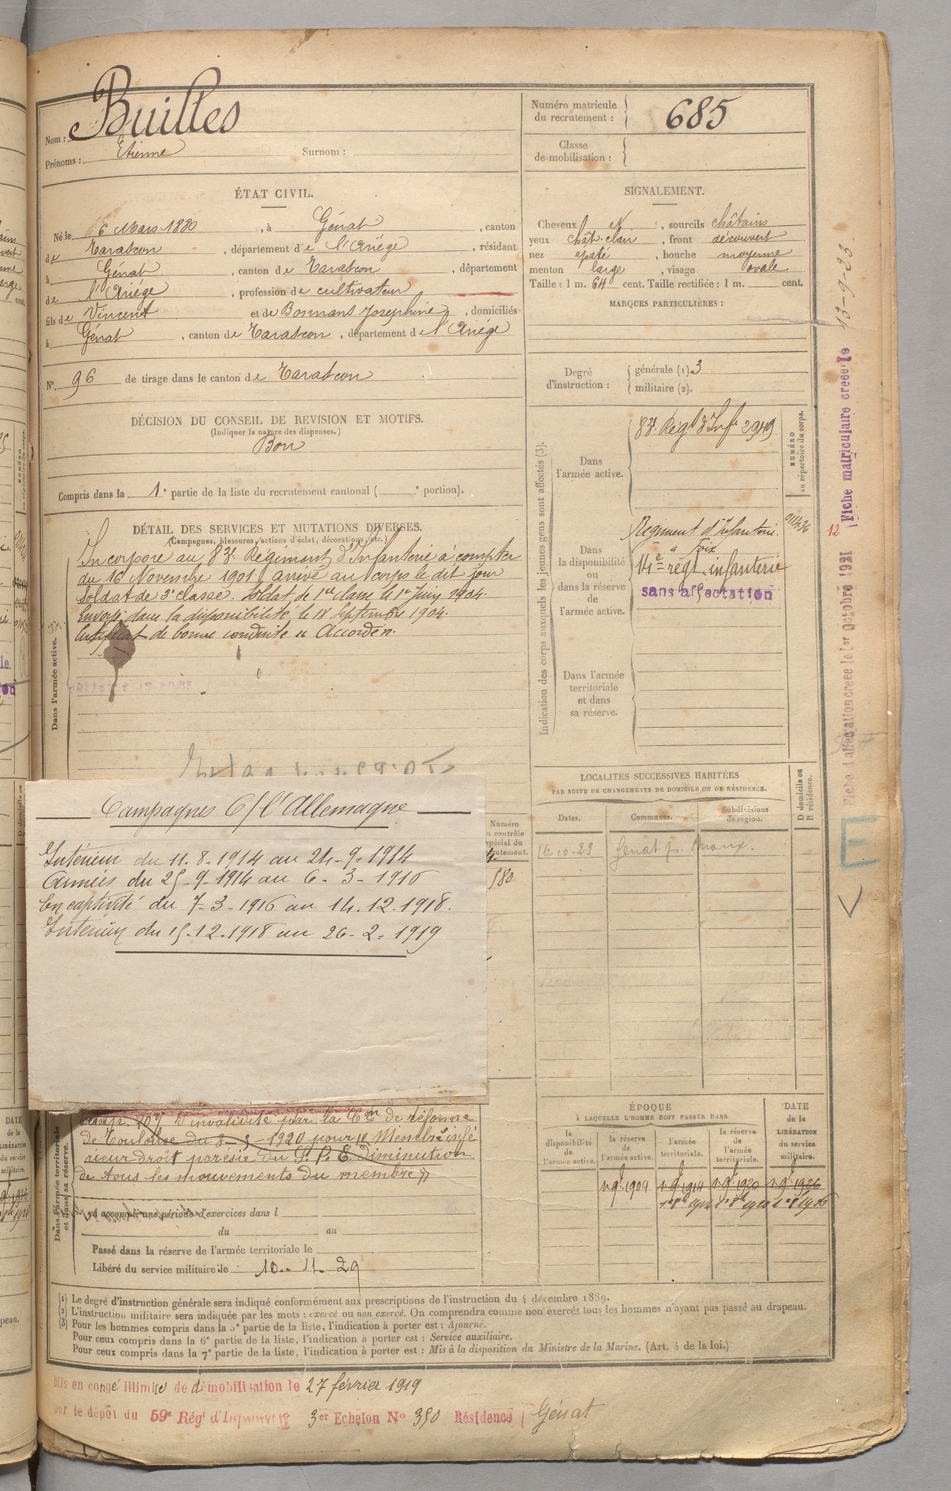 Nom : Builles
Prénoms : Etienne Surnom :
ÉTAT CIVIL.
Né le 6 Mars 1880, à Génat, canton
de Tarascon, département de l'Ariège, résidant
à Génat, canton de Tarascon, département
de l'Ariège, profession de cultivateur
fils de Vincent et de Bonnans Josephine, domiciliés
à Génat, canton de Tarascon, département de l'Ariège
N° 96 de tirage dans le canton de Tarascon
DÉCISION DU CONSEIL DE REVISION ET MOTIFS.
(Indiquer la nature des dispenses.)
Bon
Compris dans la 1e partie de la liste du recrutement cantonal ( e portion).
DÉTAIL DES SERVICES ET MUTATIONS DIVERSES.
(Campagnes, blessures, actions d'éclat, décorations, etc.)
Dans l'armée active.
Incorporé au 83e Régiment d'Infanterie à compter
du 16 Novembre 1901, arrivé au corps le dit jour
Soldat de 2e classe. Soldat de 1re classe le 1er Juin 1904.
Envoyé dans la disponibilité le 18 Septembre 1904.
Certificat de bonne conduite "Accordé".
Campagnes C/ l'Allemagne
Intérieur du 11-8-1914 au 24-9-1914
Armées du 25-9-1914 au 6-3-1916
En captivité du 7-3-1916 au 14.12.1918.
Intérieur du 15-12-1918 au 26-2-1919
Dans l'armée territoriale et dans sa réserve.
d'invalidité par la Con de réforme
de Toulouse du 1920 pour Membre infé
rieur droit parésie du S. P. E. Diminution
de tous les mouvements du membre
a accompli une période d'exercices dans l
du au
Passé dans la réserve de l'armée territoriale le
Libéré du service militaire le 10-11-29
Numéro matricule du recrutement : 685
Classe de mobilisation :
SIGNALEMENT.
Cheveux et, sourcils châtains
yeux chât. clair, front découvert
nez épaté, bouche moyenne
menton large, visage ovale
Taille : 1 m. 64 cent. Taille rectifiée : 1 m. cent.
MARQUES PARTICULIÈRES :
Degré d'instruction : générale (1) 3
militaire (2).
Indication des corps auxquels les jeunes gens sont affectés (3).
NUMÉRO au répertoire du corps.
Dans l'armée active.
83e Regt d'Infie
Dans la disponibilité ou dans la réserve de l'armée active.
Régiment d'Infanterie
à Foix
14e régt infanterie
sans affectation
Dans l'armée territoriale et dans sa réserve.
LOCALITES SUCCESSIVES HABITÉES
PAR SUITE DE CHANGEMENTS DE DOMICILE OU DE RÉSIDENCE.
Dates. Communes. Subdivisions de région. D domicile ou R résidence.
16-10-23 Génat
Numéro
ÉPOQUE
À LAQUELLE L'HOMME DOIT PASSER DANS
la disponibilité de l'armée active. la réserve de l'armée active. l'armée territoriale. la réserve de l'armée territoriale. DATE de la LIBÉRATION du service militaire.
1904 1914 1920 1926
(1) Le degré d'instruction générale sera indiqué conformément aux prescriptions de l'instruction du 4 décembre 1889.
(2) L'instruction militaire sera indiquée par les mots : exercé ou non exercé. On comprendra comme non exercés tous les hommes n'ayant pas passé au drapeau.
(3) Pour les hommes compris dans la 5e partie de la liste, l'indication à porter est : Ajourné.
Pour ceux compris dans la 6e partie de la liste, l'indication à porter est : Service auxiliaire.
Pour ceux compris dans la 7e partie de la liste, l'indication à porter est : Mis à la disposition du Ministre de la Marine. (Art. 4 de la loi.)
Mis en congé illimité de démobilisation le 27 février 1919
par le dépôt du 59e Régt d'Infanterie 3er Echelon No 350 Résidence Génat
Fiche d'affectation créée le 1er Octobre 1921
Fiche matriculaire créée le 13-9-23
12
E